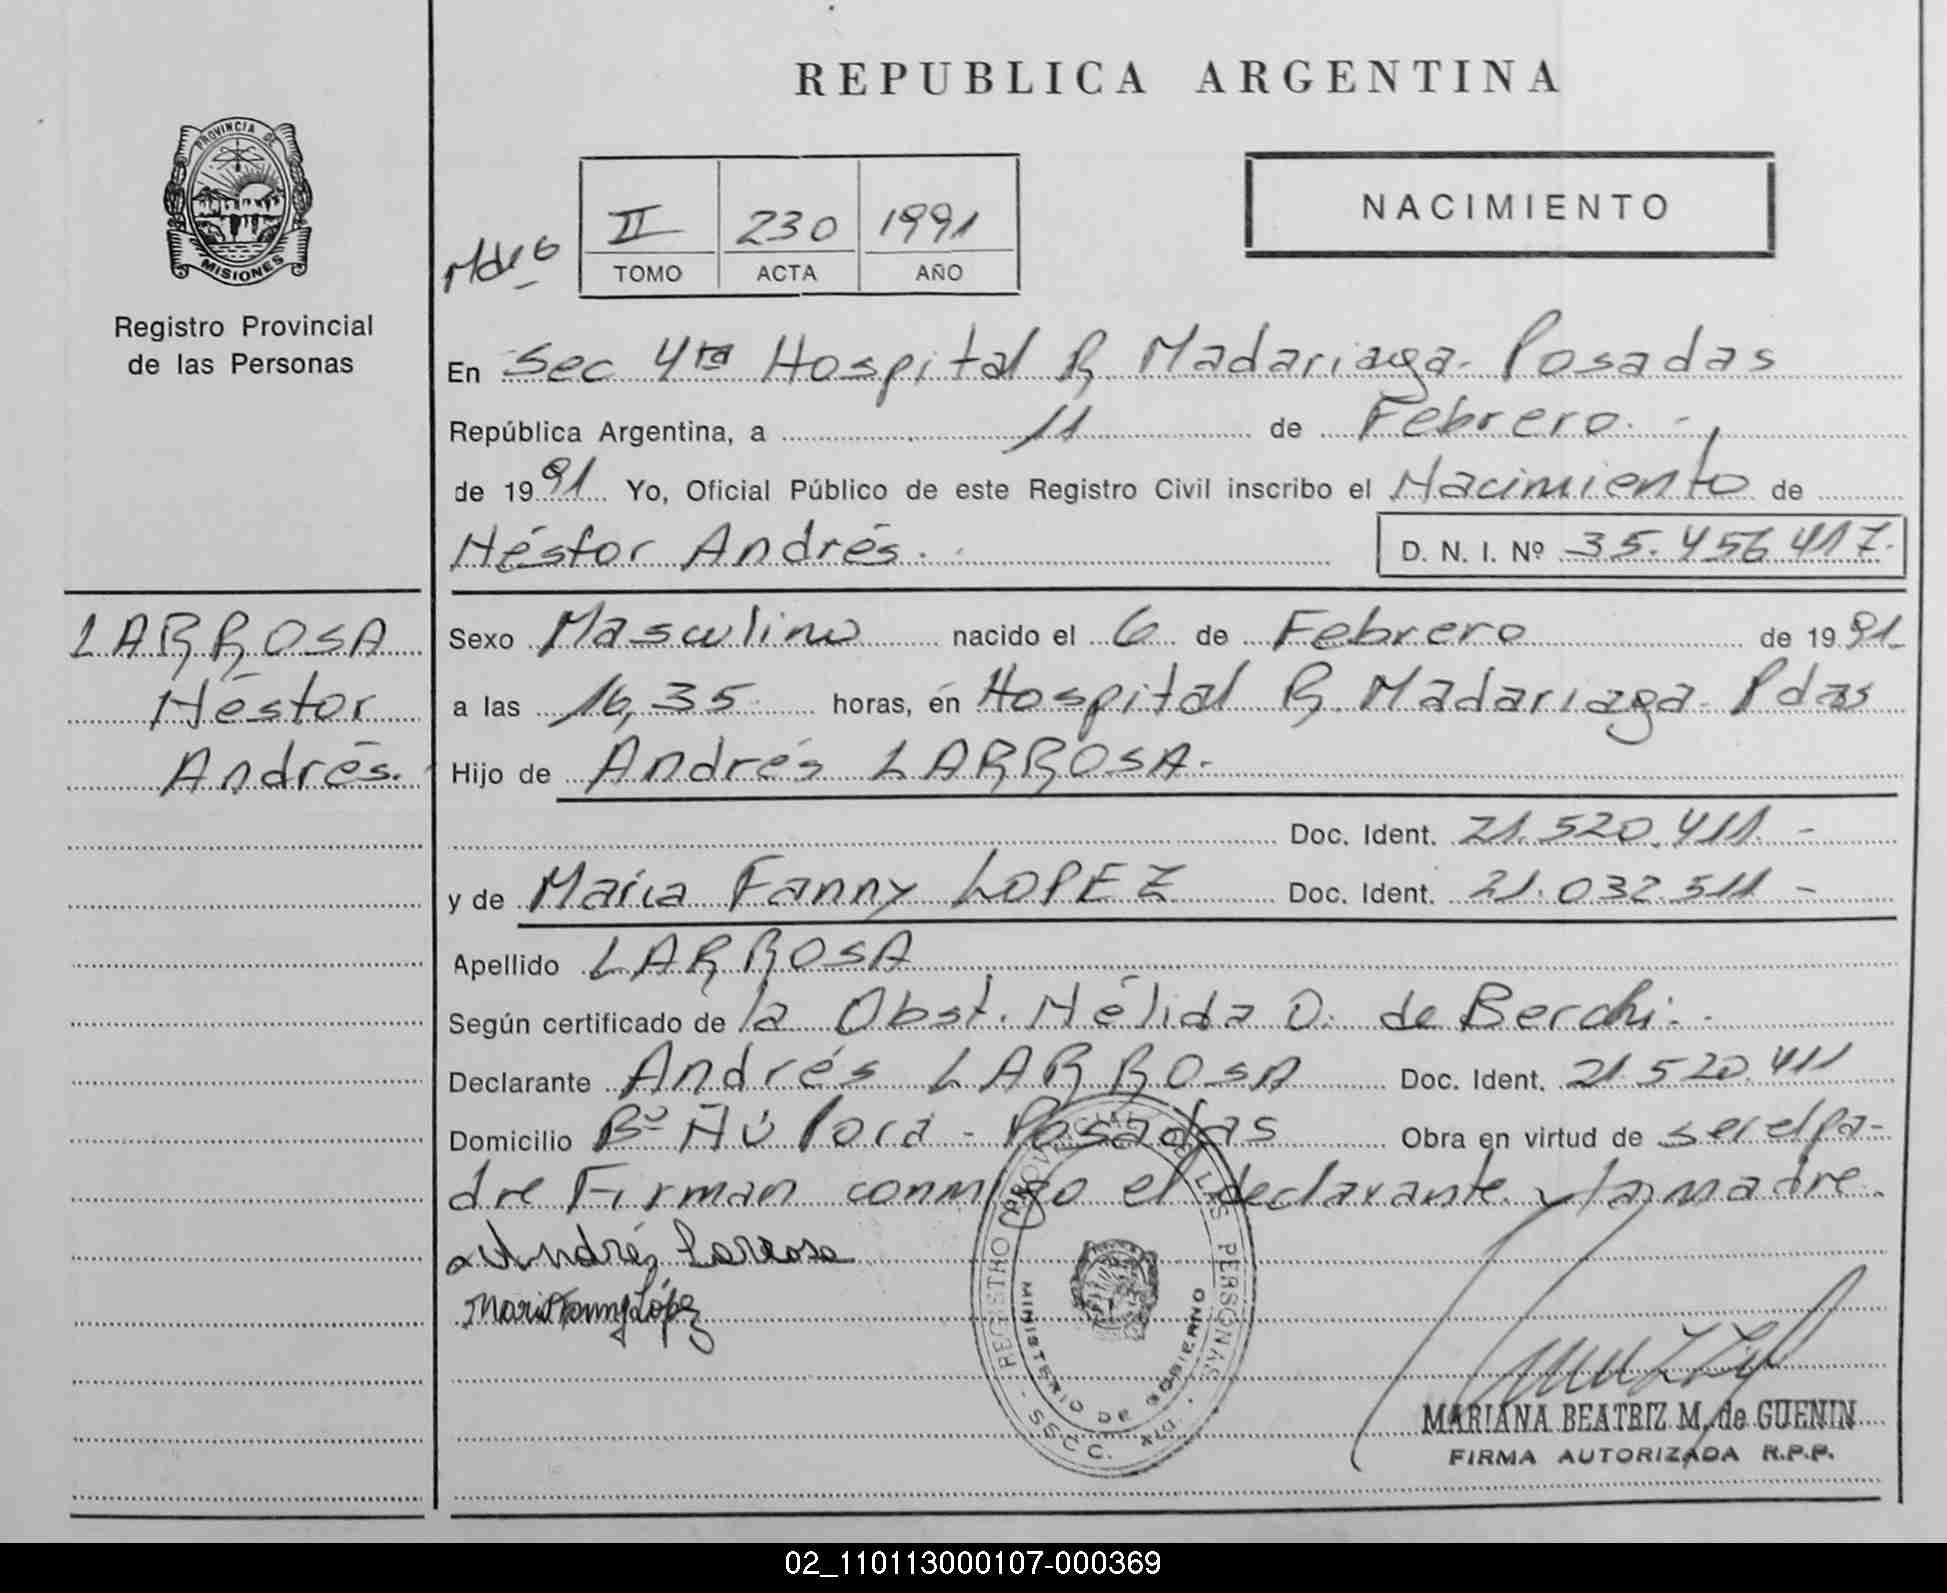 REPUBLICA ARGENTINA
PROVINCIA DE
MISIONES
Registro Provincial
de las Personas
NACIMIENTO
II 230 1991
TOMO ACTA AÑO
En Sec 4ta Hospital R Madariaga - Posadas
República Argentina, a 11 de Febrero. -
de 1991 Yo, Oficial Público de este Registro Civil inscribo el Nacimiento de
Néstor Andrés. D. N. I. Nº 35.456.417.
LARROSA
Néstor
Andrés.
Sexo Masculino nacido el 6 de Febrero de 1991
a las 16,35 horas, en Hospital R. Madariaga - Pdas
Hijo de Andrés LARROSA.
Doc. Ident. 21.520.411. -
y de María Fanny LOPEZ Doc. Ident. 21.032.511 -
Apellido LARROSA
Según certificado de la Obst. Nélida O. de Berchi.
Declarante Andrés LARROSA Doc. Ident. 21.520.411
Domicilio Bº Ñú Porá - Posadas Obra en virtud de ser el pa-
dre Firman conmigo el declarante y la madre.
Andrés Larrosa
Maria Fanny López
REGISTRO PROVINCIAL DE LAS PERSONAS
MINISTERIO DE GOBIERNO
SSCC.
MARIANA BEATRIZ M. de GUENIN
FIRMA AUTORIZADA R.P.P.
02_110113000107-000369